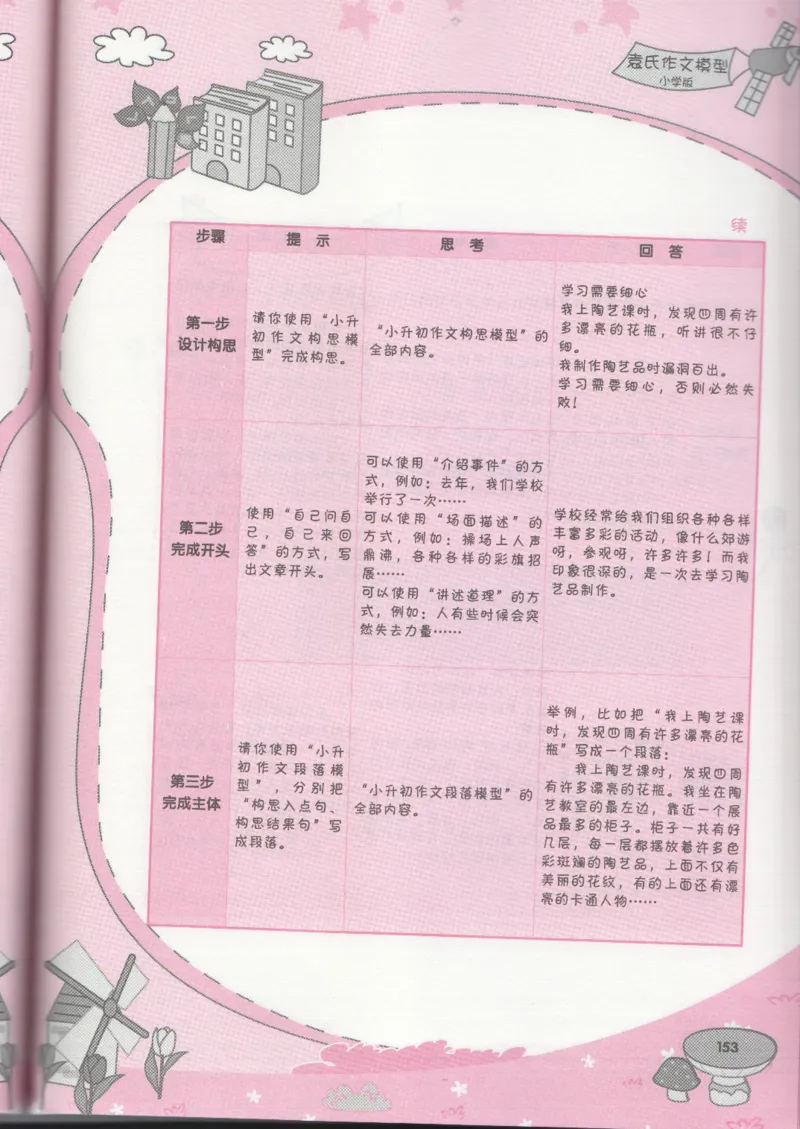 袁氏作文模型
小学版
续
步骤
提 示
思 考
回 答
第一步
设计构思
请你使用“小升
初作文构思模
型”完成构思。
“小升初作文构思模型”的
全部内容。
学习需要细心
我上陶艺课时，发现四周有许
多漂亮的花瓶，听讲很不仔
细。
我制作陶艺品时漏洞百出。
学习需要细心，否则必然失
败！
第二步
完成开头
使用“自己问自
己，自己来回
答”的方式，写
出文章开头。
可以使用“介绍事件”的方
式，例如：去年，我们学校
举行了一次……
可以使用“场面描述”的
方式，例如：操场上人声
鼎沸，各种各样的彩旗招
展……
可以使用“讲述道理”的方
式，例如：人有些时候会突
然失去力量……
学校经常给我们组织各种各样
丰富多彩的活动，像什么郊游
呀，参观呀，许多许多！而我
印象很深的，是一次去学习陶
艺品制作。
第三步
完成主体
请你使用“小升
初作文段落模
型”，分别把
“构思入点句、
构思结果句”写
成段落。
“小升初作文段落模型”的
全部内容。
举例，比如把“我上陶艺课
时，发现四周有许多漂亮的花
瓶”写成一个段落：
我上陶艺课时，发现四周
有许多漂亮的花瓶。我坐在陶
艺教室的最左边，靠近一个展
品最多的柜子。柜子一共有好
几层，每一层都摆放着许多色
彩斑斓的陶艺品，上面不仅有
美丽的花纹，有的上面还有漂
亮的卡通人物……
153